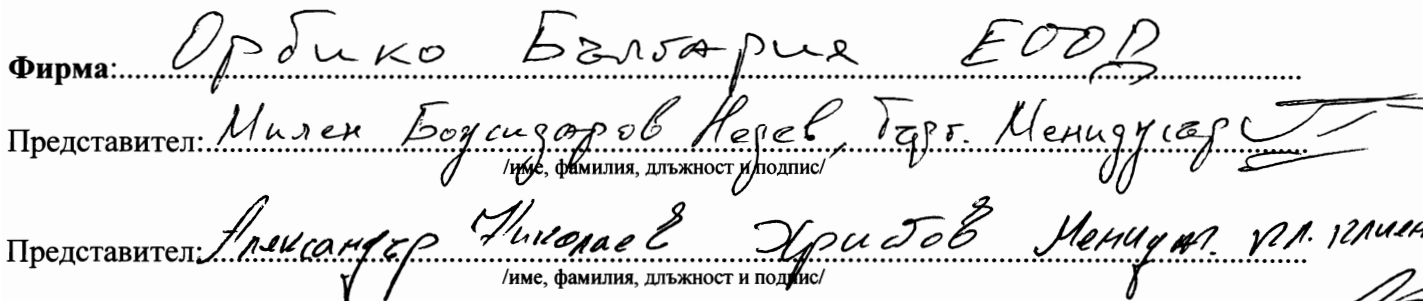 Фирма: Орбико България ЕООД
Представител: Милен Божидаров Недев, Търг. Мениджър
/име, фамилия, длъжност и подпис/
Представител: Александър Николаев Христов Менидж. кл. клиен
/име, фамилия, длъжност и подпис/